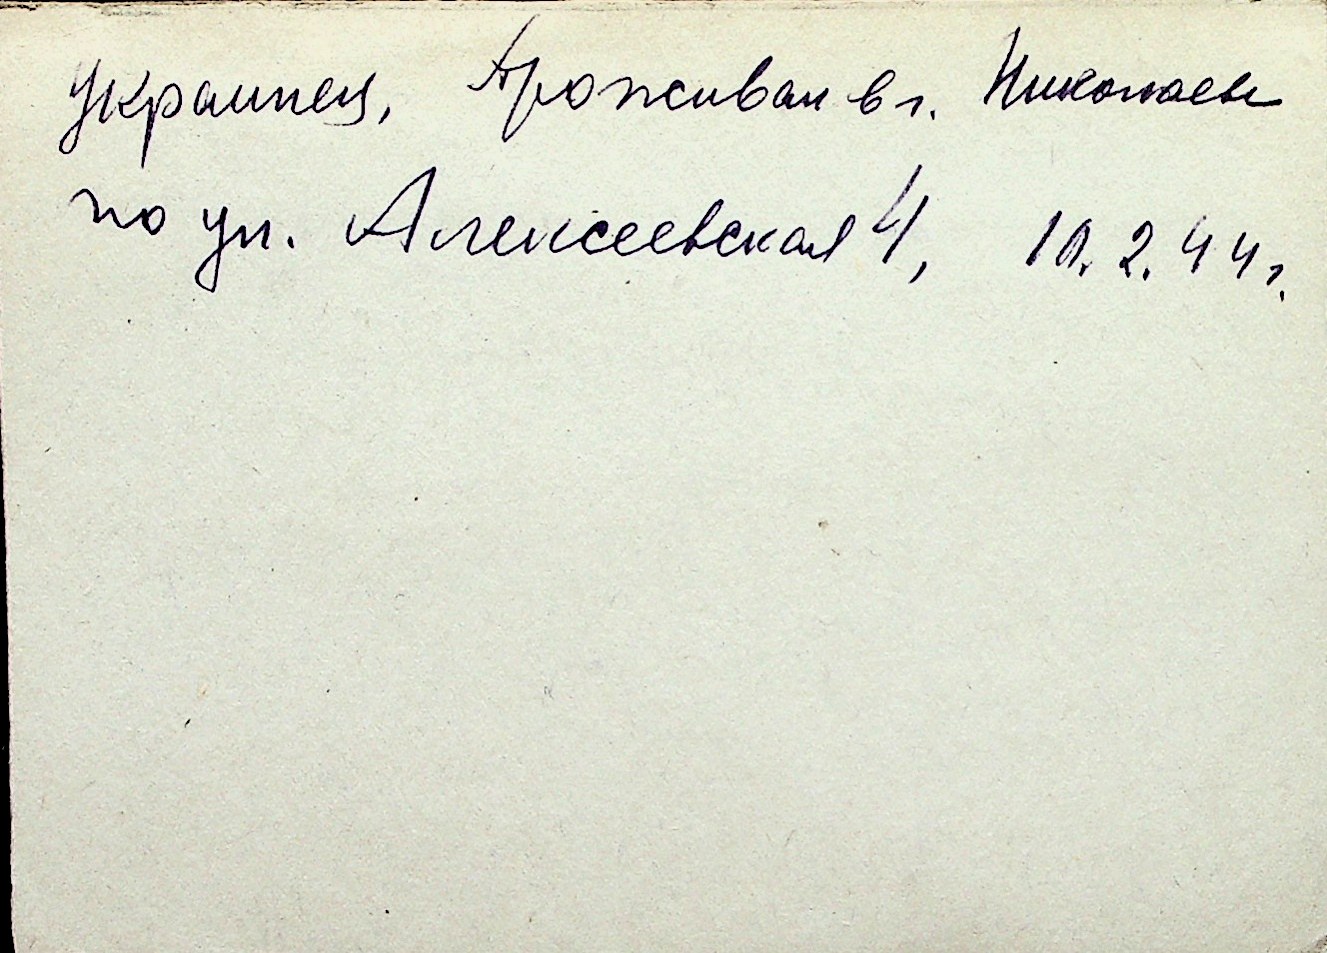 Украинец, Проживал в г. Николаев
по ул. Алексеевская 4, 10.2.44г.